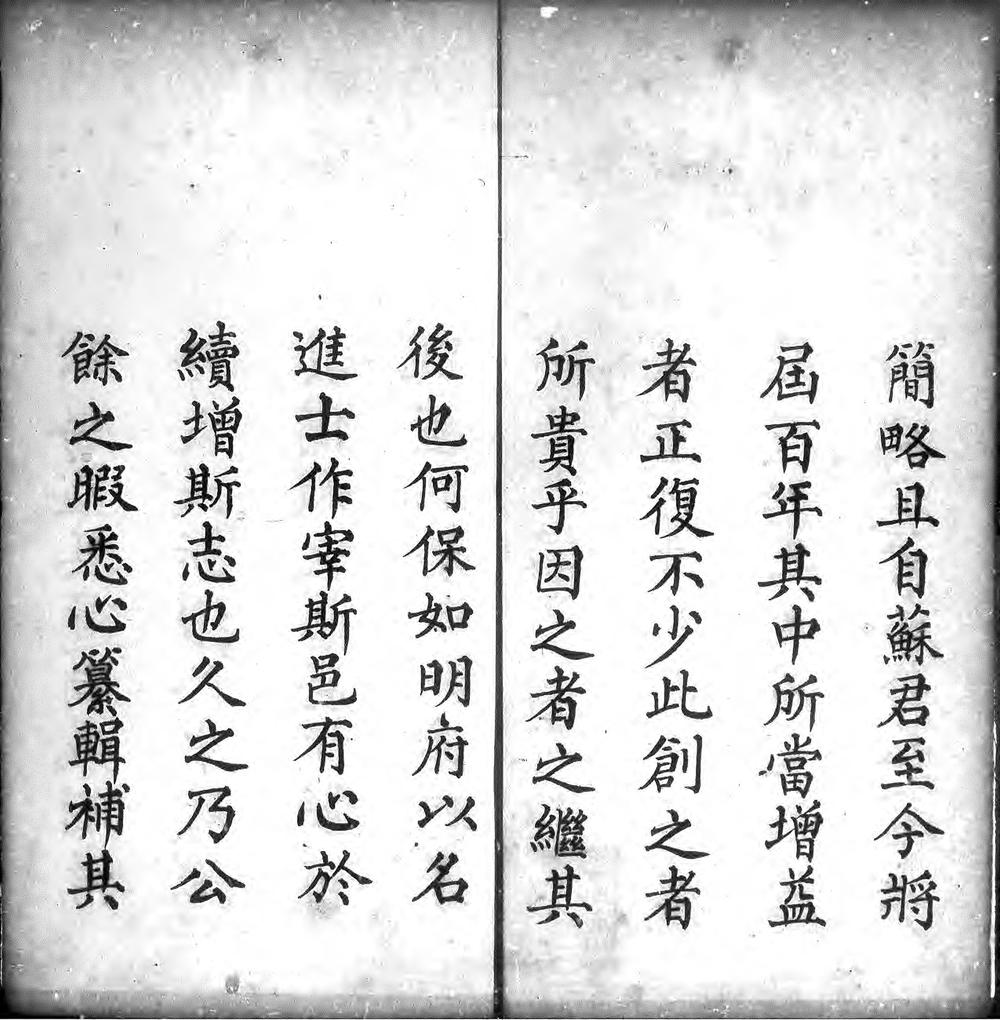 簡略且自蘇君至今將
屆百年其中所當增益
者正復不少此創之者
所貴乎因之者之繼其
後也何保如明府以名
進士作宰斯邑有心於
續增斯志也久之乃公
餘之暇悉心纂輯補其